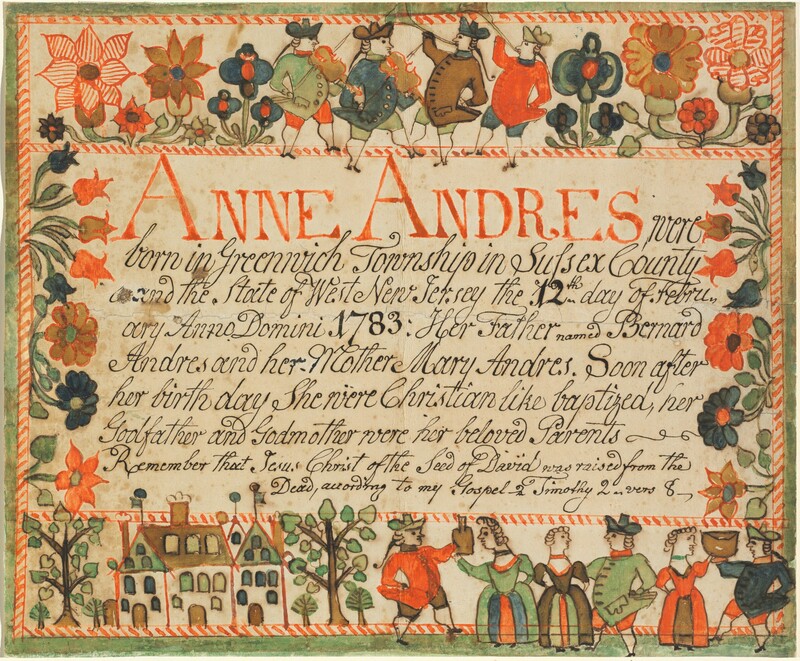 ANNE ANDRES were
born in Greenwich Township in Sussex County
and the State of West New Jersey the 12th day of Febru-
ary Anno Domini 1783: Her Father named Bernard
Andres and her Mother Mary Andres. Soon after
her birth day She were Christian like baptized, her
Godfather and Godmother were her beloved Parents
Remember that Jesus Christ of the Seed of David was raised from the
Dead, according to my Gospel 2 Timothy 2 vers 8